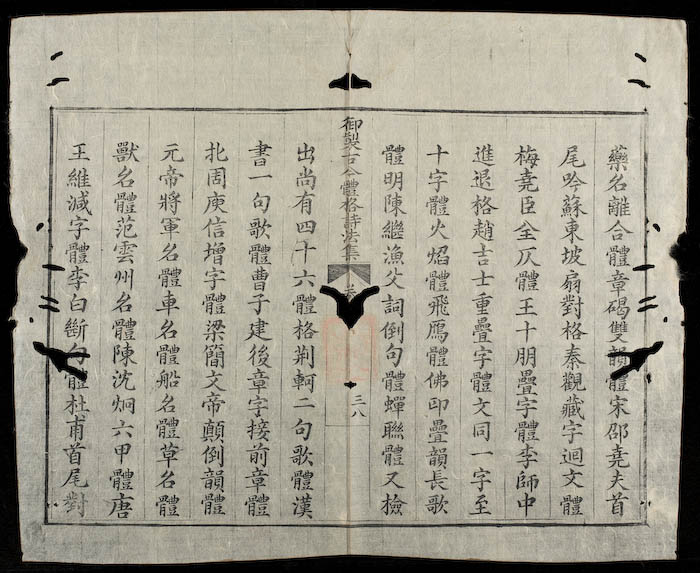 藥名離合體章碣雙韻體宋邵堯夫首
尾吟蘇東坡扇對格秦觀藏字迴文體
梅堯臣全仄體王十朋疊字體李師中
進退格趙吉士重疊字體文同一字至
十字體火焰體飛鴈體佛印疊韻長歌
體明陳繼漁父詞倒句體蟬聯體又撿
御製古今體格詩法集
卷
三八
出尚有四十六體格荆軻二句歌體漢
書一句歌體曹子建後章字接前章體
北周庾信增字體梁簡文帝顛倒韻體
元帝將軍名體車名體船名體草名體
獸名體范雲州名體陳沈炯六甲體唐
王維減字體李白斷句體杜甫首尾對